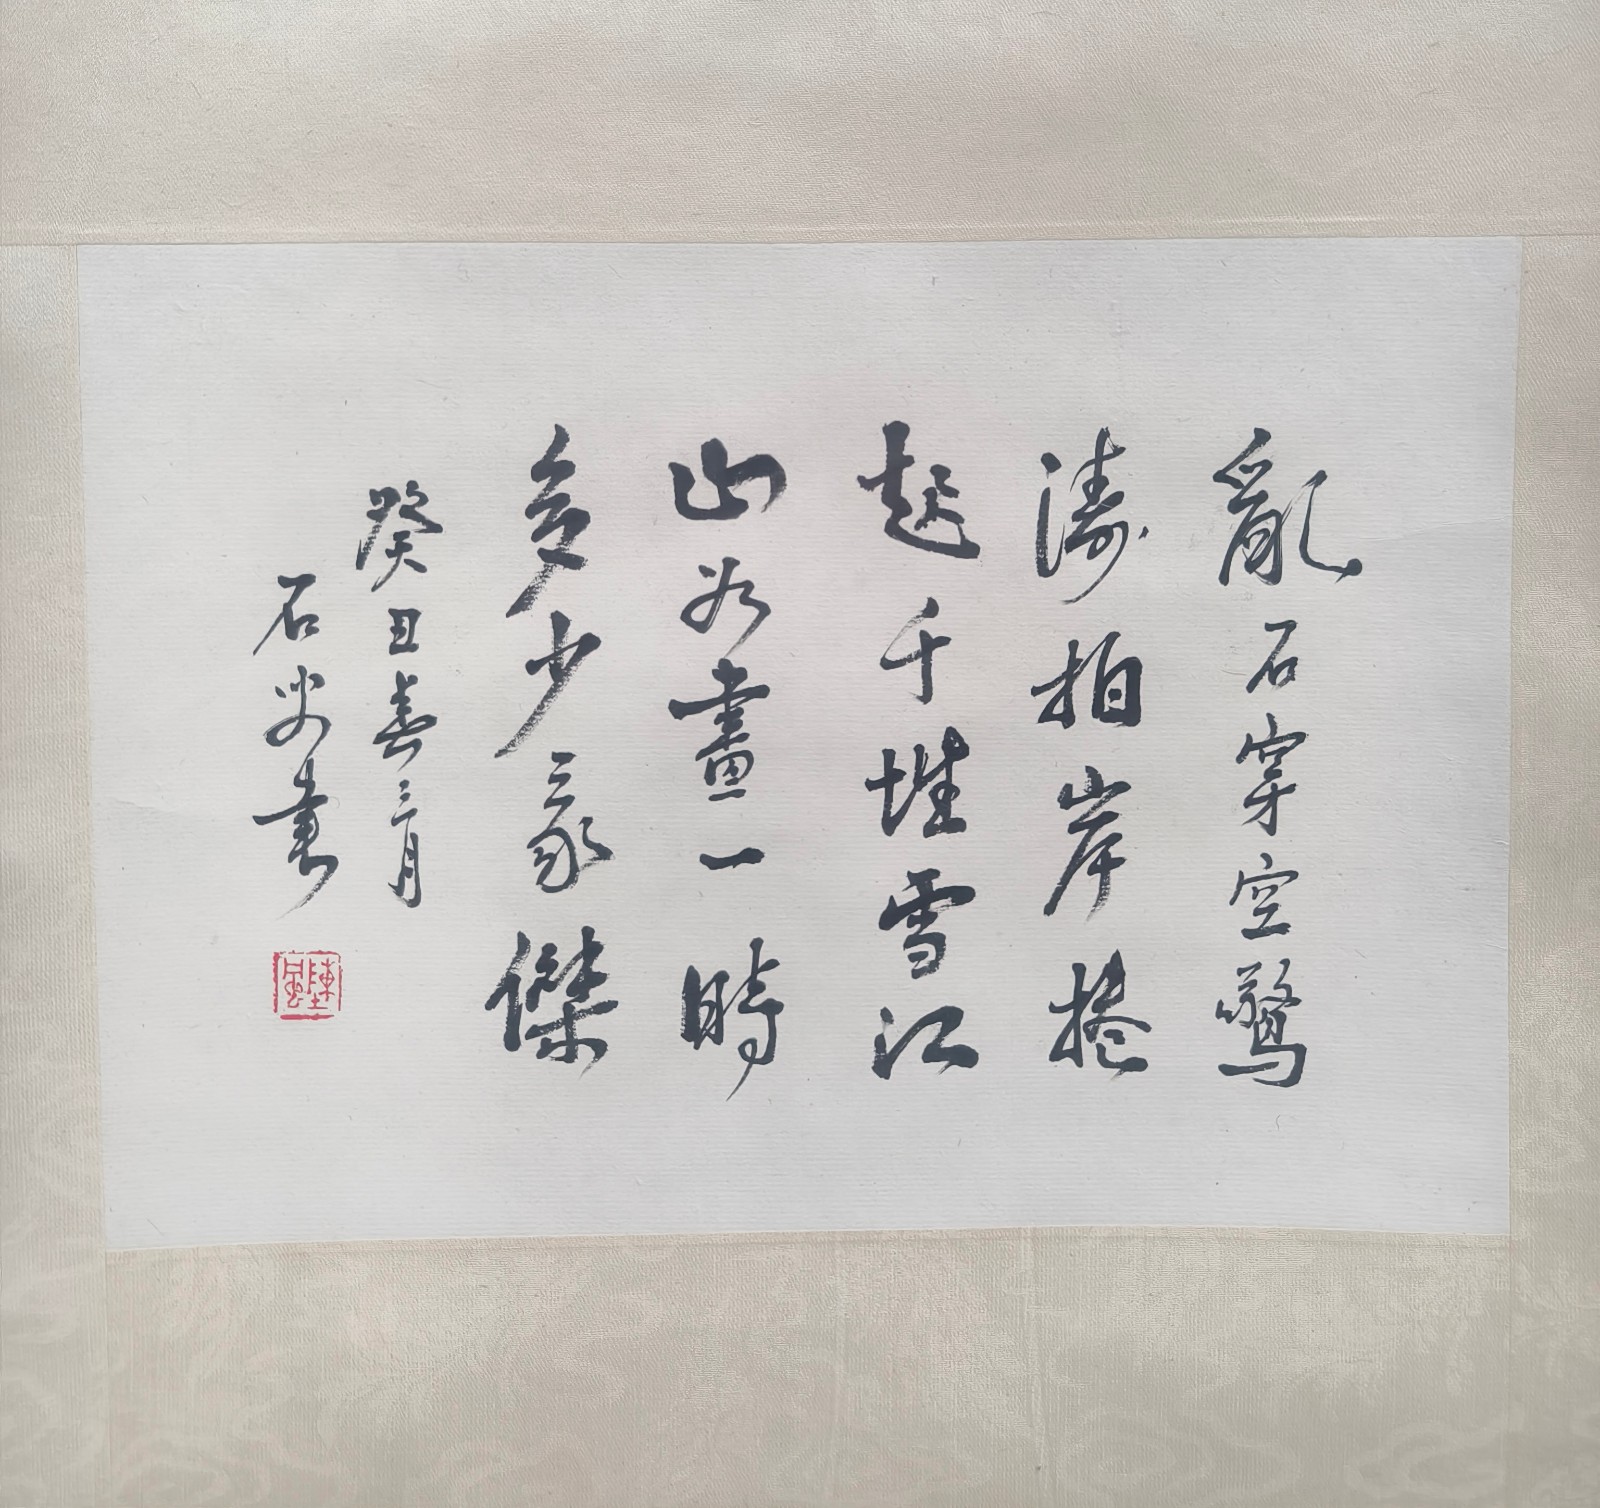 亂石穿空驚
濤拍岸捲
起千堆雪江
山如畫一時
多少豪傑
癸丑春三月
石尚書